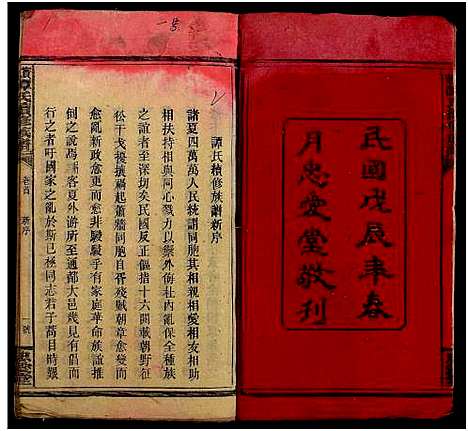 民國戊辰年春
月忠愛堂敬刊
譚氏續修族譜新序
諸夏四萬萬人民統謂同胞其相親相愛相友相助
相扶持相與同心戮力以禦外侮杜內亂保全種族
之誼者至深切矣民國反正傴指十六閱載朝野征
伀干戈擾攘禍起蕭牆同胞自胥殘賊朝章愈變而
愈亂新政愈更而愈非駸駸乎有家庭革命族誼推
倒之說焉客夏外游所至通都大邑幾見有倡而
行之者吁國家之亂於斯已極同志君子蒿目時艱
卷首
新序
一號